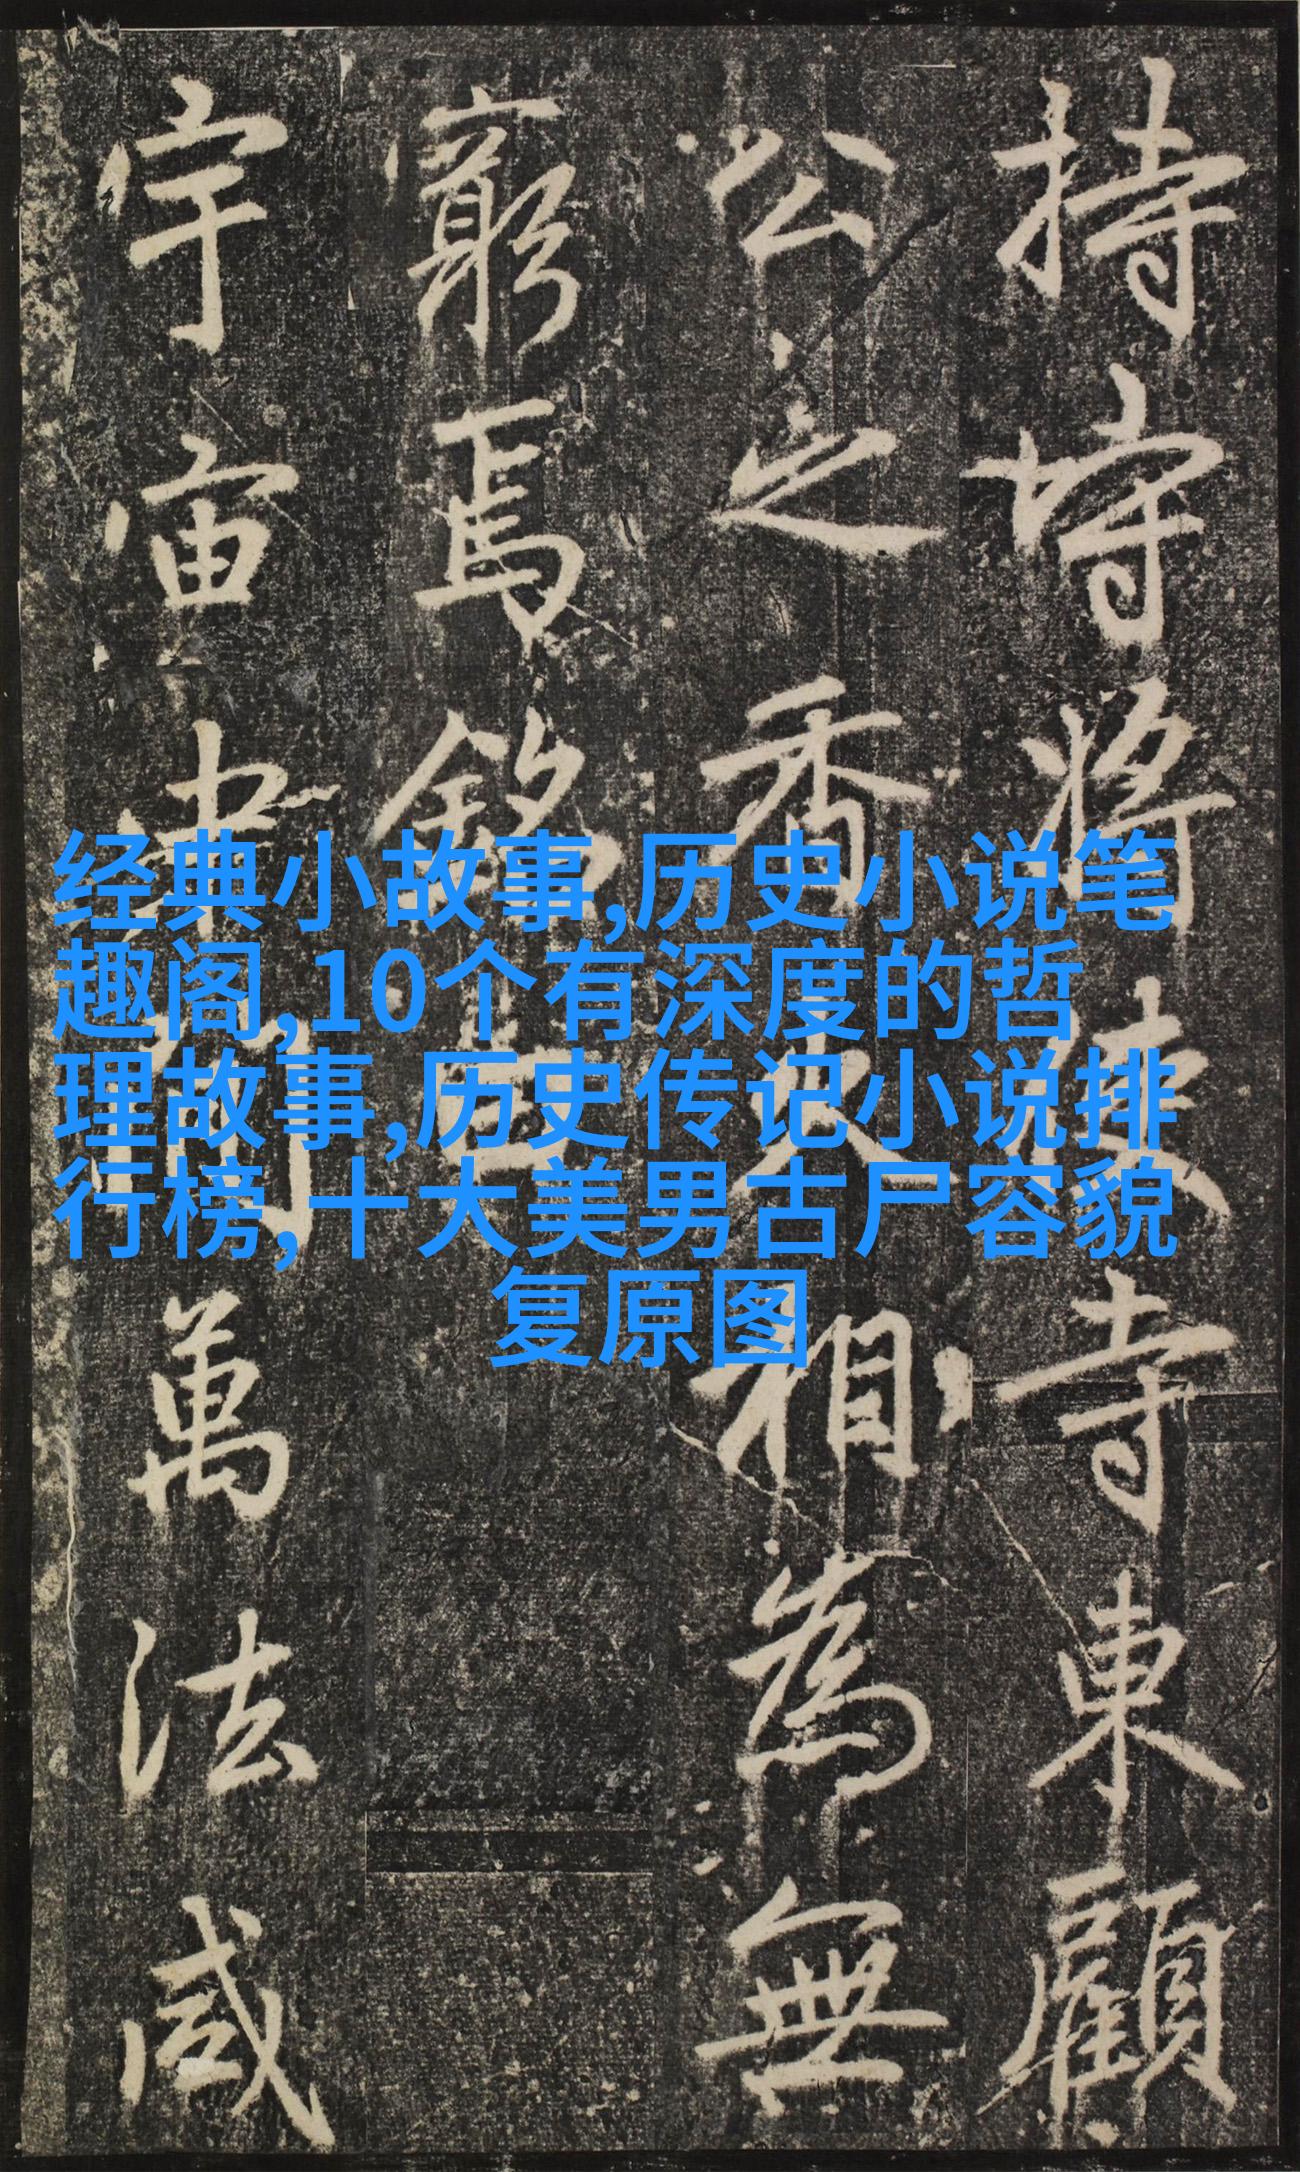 经典小故事,历史小说笔
趣阁,10个有深度的哲
理故事,历史传记小说排
行榜,十大美男古尸容貌
复原图
持將寺東顧
公之香火相為無
窮焉銘曰
宇宙萬法咸